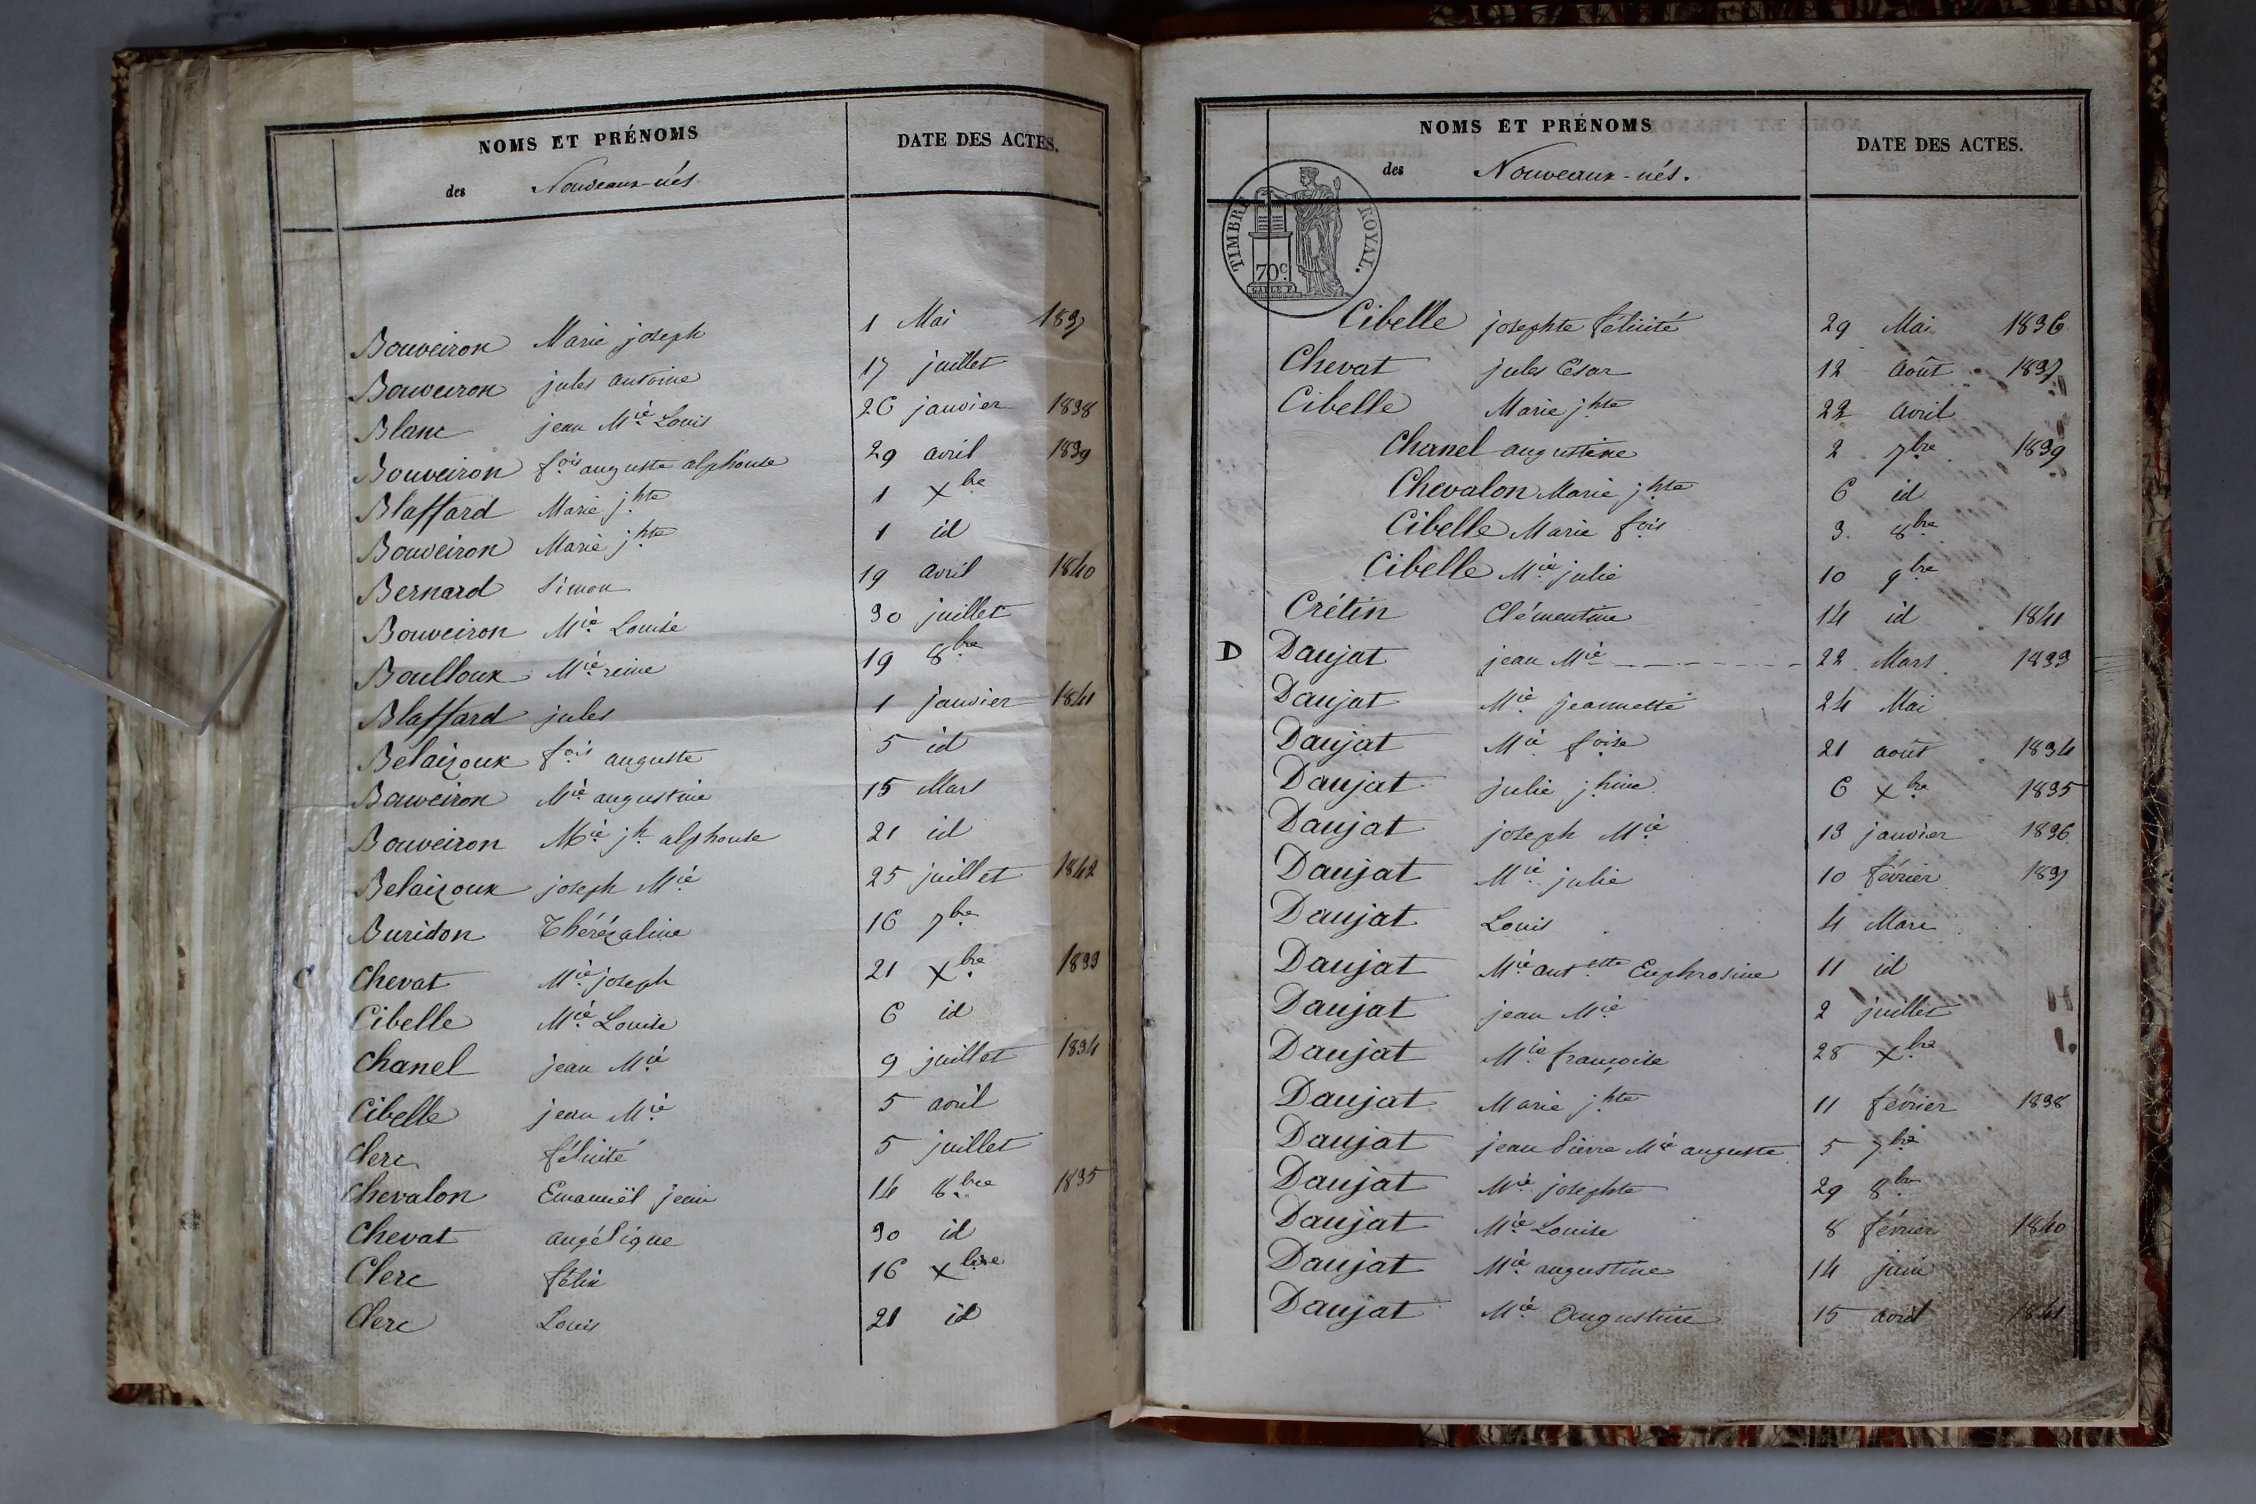 NOMS ET PRÉNOMS
DATE DES ACTES.
des Nouveaux-nés
Bouveiron Marie joseph 1 Mai 1837
Bouveiron jules antoine 17 juillet
Blanc jean Mie Louis 26 janvier 1838
Bouveiron fois auguste alphonse 29 avril 1839
Blaffard Marie jhte 1 Xbre
Bouveiron Marie jhte 1 id
Bernard Simon 19 avril 1840
Bouveiron Mie Louise 30 juillet
Boulloux Mie reine 19 8bre
Blaffard jules 1 janvier 1841
Belaizoux fois auguste 5 id
Bouveiron Mie augustine 15 Mars
Bouveiron Mie jh alphonse 21 id
Belaizoux joseph Mie 25 juillet 1842
Buridon Thérézaline 16 7bre
C Chevat Mie joseph 21 Xbre 1833
Cibelle Mie Louise 6 id
Chanel jean Mie 9 juillet 1834
Cibelle jean Mie 5 avril
Clerc félicité 5 juillet
Chevalon Emanuël jean 14 8bre 1835
Chevat angélique 30 id
Clerc félix 16 Xbre
Clerc Louis 21 id
NOMS ET PRÉNOMS
DATE DES ACTES.
des Nouveaux-nés.
TIMBRE ROYAL.
70c
Cibelle josephte félicité 29 Mai 1836
Chevat jules César 12 Août 1837
Cibelle Marie jhte 22 avril
Chanel augustine 2 7bre 1839
Chevalon Marie jhte 6 id
Cibelle Marie fois 3 8bre
Cibelle Mie julie 10 9bre
Crétin Clémentine 14 id 1841
D Daujat jean Mie 22 Mars 1833
Daujat Mie jeannette 24 Mai
Daujat Mie foise 21 août 1834
Daujat julie jhine 6 Xbre 1835
Daujat joseph Mie 13 janvier 1836
Daujat Mie julie 10 février 1837
Daujat Louis 4 Mars
Daujat Mie antette Euphrosine 11 id
Daujat jean Mie 2 juillet
Daujat Mie françoise 28 Xbre
Daujat Marie jhte 11 février 1838
Daujat jean Pierre Mie auguste 5 7bre
Daujat Mie josephte 29 8bre
Daujat Mie Louise 8 février 1840
Daujat Mie augustine 14 juin
Daujat Mie Augustine 15 avril 1841